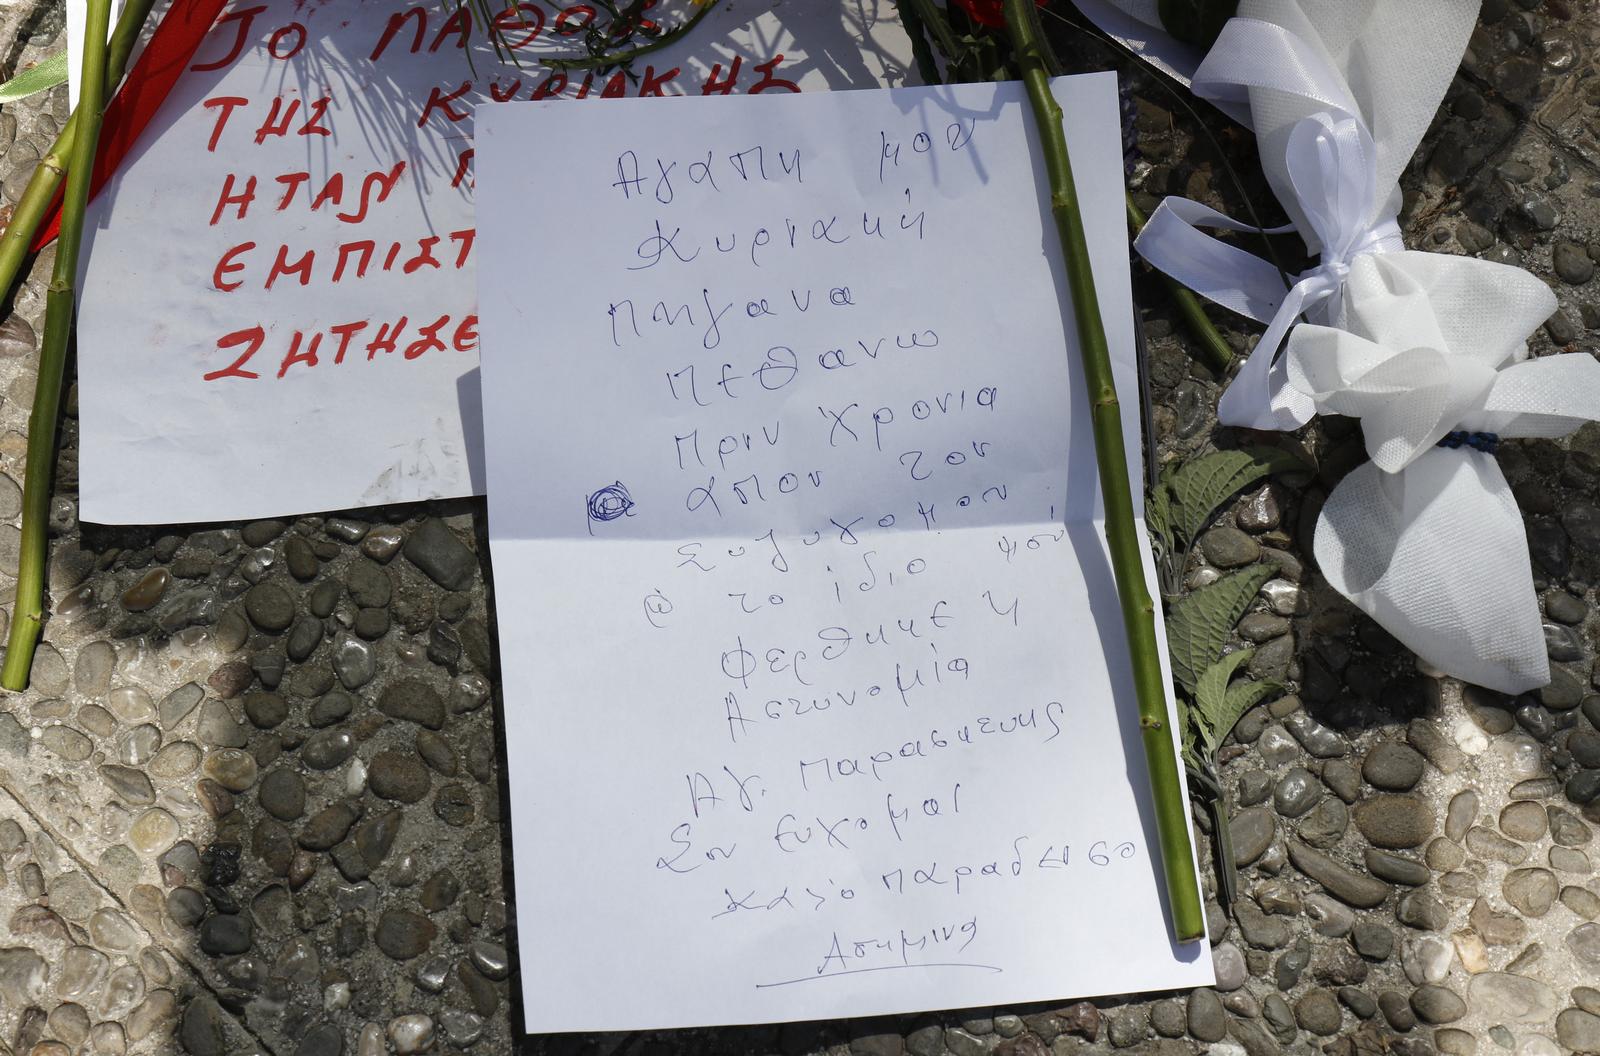 ΤΟ ΠΑΘΟΣ
ΤΗΣ ΚΥΡΙΑΚΗΣ
ΗΤΑΝ
ΕΜΠΙΣΤ
ΖΗΤΗΣΕ
Αγαπη μου
Κυριακή
Πηγανα
πεθανω
πριν χρονια
απου τον
Συζυγο μου.
το ίδιο μου
φερθηκε η
Αστυνομία
Αγ. Παρασκευης
Σου ευχομαι
καλό παραδεισο
Ασημινα